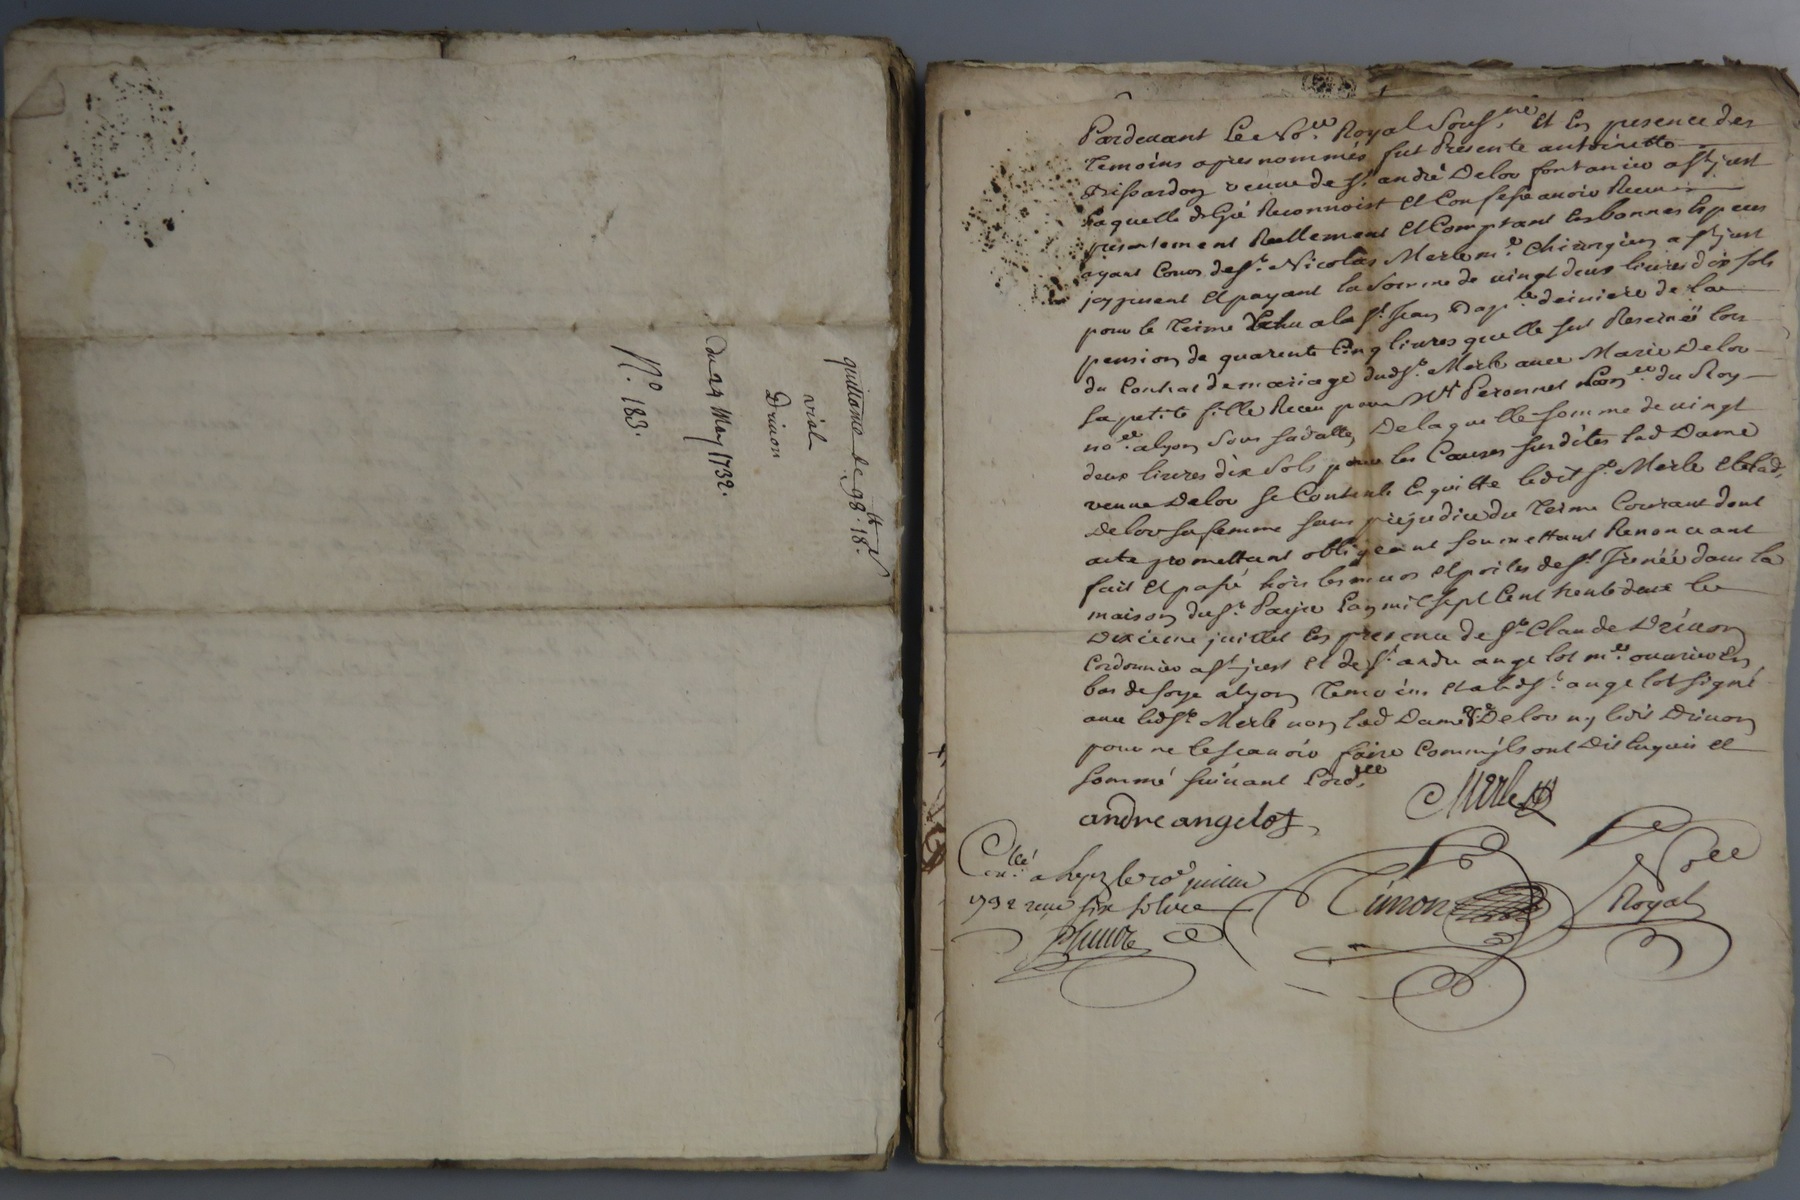 quittance de 98.lt 18.s
vial
Drivon
du 24 May 1732.
N.o 183.
Pardevant Le No.re Royal Sous.né Et En presence des
Temoins apres nommés fut Presente antoinette
Dissardon veuve de s.r andré Delor fontanier a s.t just
Laquelle de Gré Reconnoist et Confesse avoir Receu
presentement Reellement et Comptant En bonnes Especes
ayant Cours de s.r Nicolas Merle m.e chirurgien a s.t just
icy present et payant la somme de vingt deux livres dix sols
pour le Terme Echu a la s.t Jean Bap.te derniere de la
pension de quarente Cinq livres quelle sest Reservée lors
du Contrat de mariage dud.s.r Merle avec Marie Delor
sa petite fille Receu par M.e Peronnet Con.er du Roy
no.re a Lyon sous sa datte, De laquelle somme de vingt
deux livres dix sols pour les Causes susdites lad Dame
veuve Delor se Contente Et quitte ledit s.r Merle et lad.
Delor sa femme sans prejudice du Terme Courant dont
acte promettant obligeant soumettant Renonceant
fait Et passé hors les murs et portes de s.t Irenée dans la
maison du s.r Payre L'an mil sept Cent trente deux le
Dixieme juillet En presence de s.r Claude Drivon
Cordonnier a s.t just et de s.r andré angelot m.e ouvrier En
bas de soye a Lyon Temoins et a led.s.r angelot signé
avec led.s.r Merle non lad Dame V.e Delor ny ledit Drivon
pour ne le scavoir faire Comm'ils ont Dit Enquis et
sommé suivant L'ord.ce
Merle
andre angelot
Con.lé a Lyon le 20e juillet
1732 receu six sols
Timon
No.re
Royal